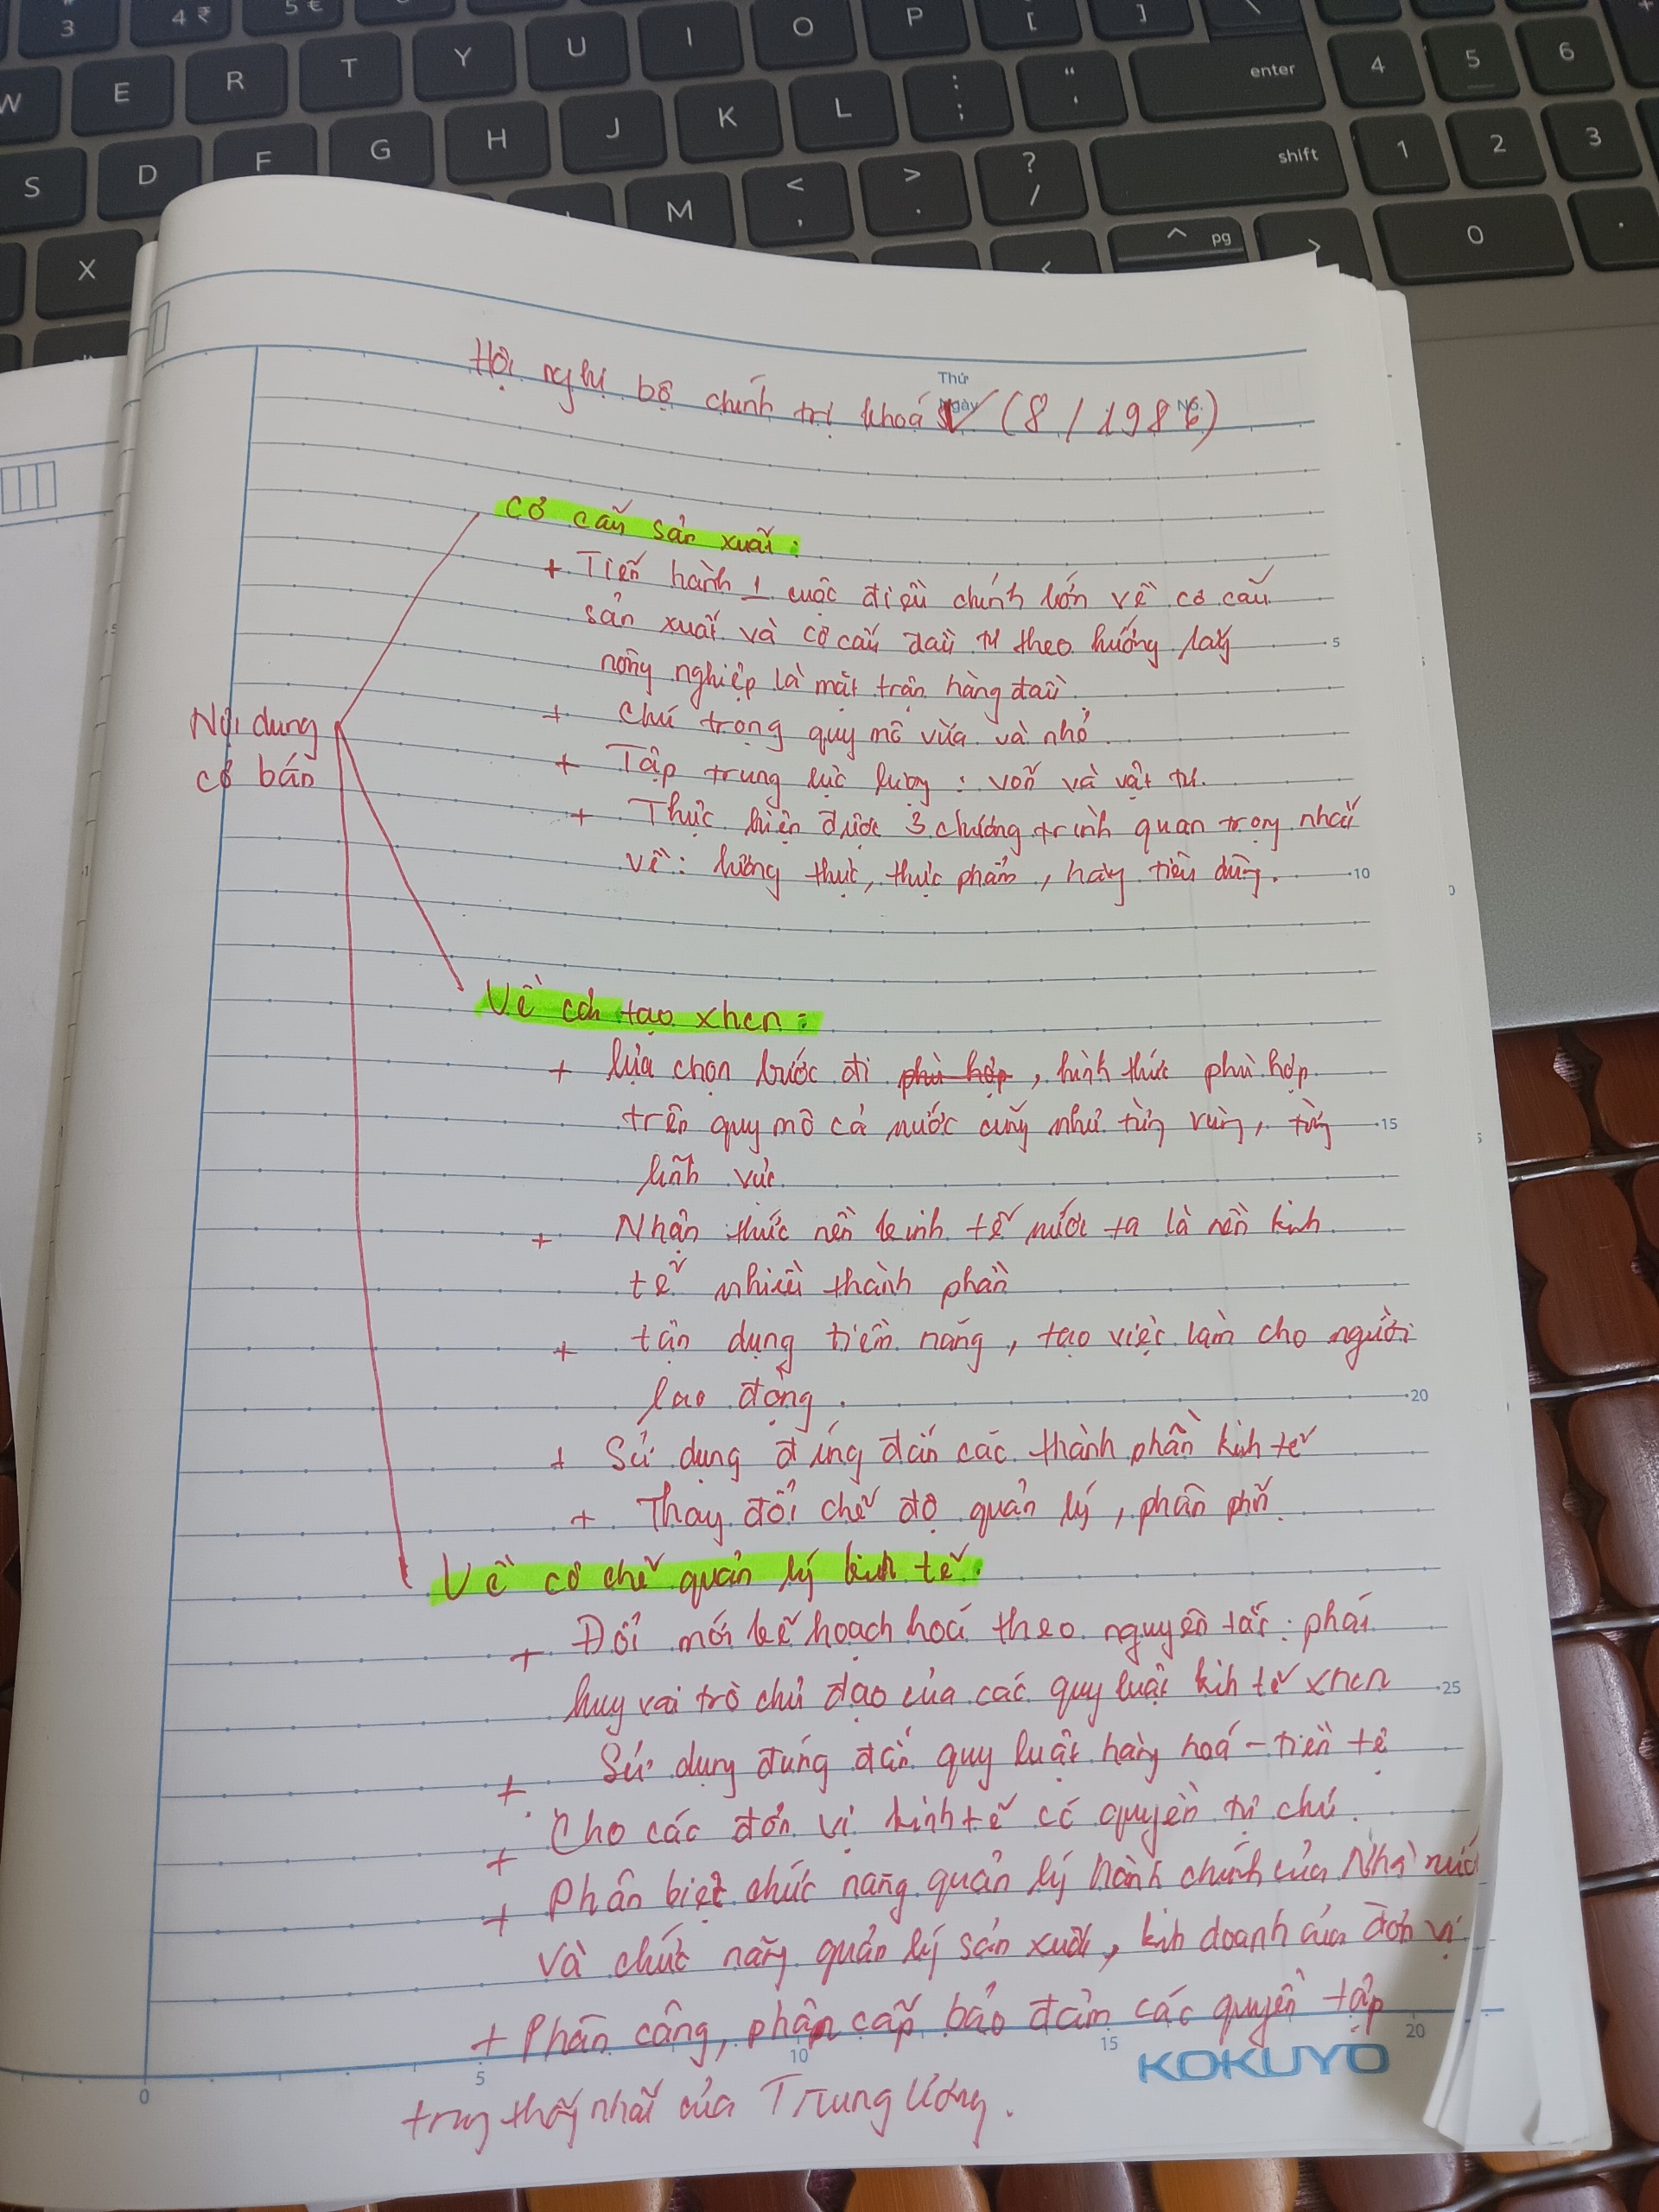 3
4 ₹
5 €
W E R T Y U I O P [ ] \
S D F G H J K L : ; " ' enter 4 5 6
X M < , > . ? / shift 1 2 3
^ pg > 0 .
<
Thứ
Ngày
No.
Hội nghị bộ chính trị khoá V (8/1986)
Cơ cấu sản xuất:
+ Tiến hành 1 cuộc điều chỉnh lớn về cơ cấu
sản xuất và cơ cấu đầu tư theo hướng lấy
nông nghiệp là mặt trận hàng đầu.
+ Chú trọng quy mô vừa và nhỏ.
Nội dung
cơ bản
+ Tập trung lực lượng: vốn và vật tư.
+ Thực hiện được 3 chương trình quan trọng nhất
về: lương thực, thực phẩm, hàng tiêu dùng.
5
10
Về cải tạo xhcn:
+ lựa chọn bước đi phù hợp, hình thức phù hợp
trên quy mô cả nước cũng như từng vùng, từng
15
lĩnh vực
+ Nhận thức nền kinh tế nước ta là nền kinh
tế nhiều thành phần
+ tận dụng tiềm năng, tạo việc làm cho người
lao động.
20
+ Sử dụng đúng đắn các thành phần kinh tế
+ Thay đổi chế độ quản lý, phân phối
Về cơ chế quản lý kinh tế:
+ Đổi mới kế hoạch hoá theo nguyên tắc: phát
huy vai trò chủ đạo của các quy luật kinh tế xhcn
25
+ Sử dụng đúng đắn quy luật hàng hoá - tiền tệ
+ Cho các đơn vị kinh tế có quyền tự chủ.
+ Phân biệt chức năng quản lý hành chính của Nhà nước
và chức năng quản lý sản xuất, kinh doanh của đơn vị
+ Phân công, phân cấp bảo đảm các quyền tập
trung thống nhất của Trung Ương.
0 5 10 15 20
KOKUYO